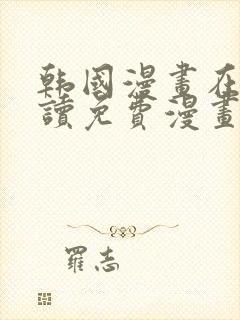 韩國漫畫在
讀免費漫畫
羅志